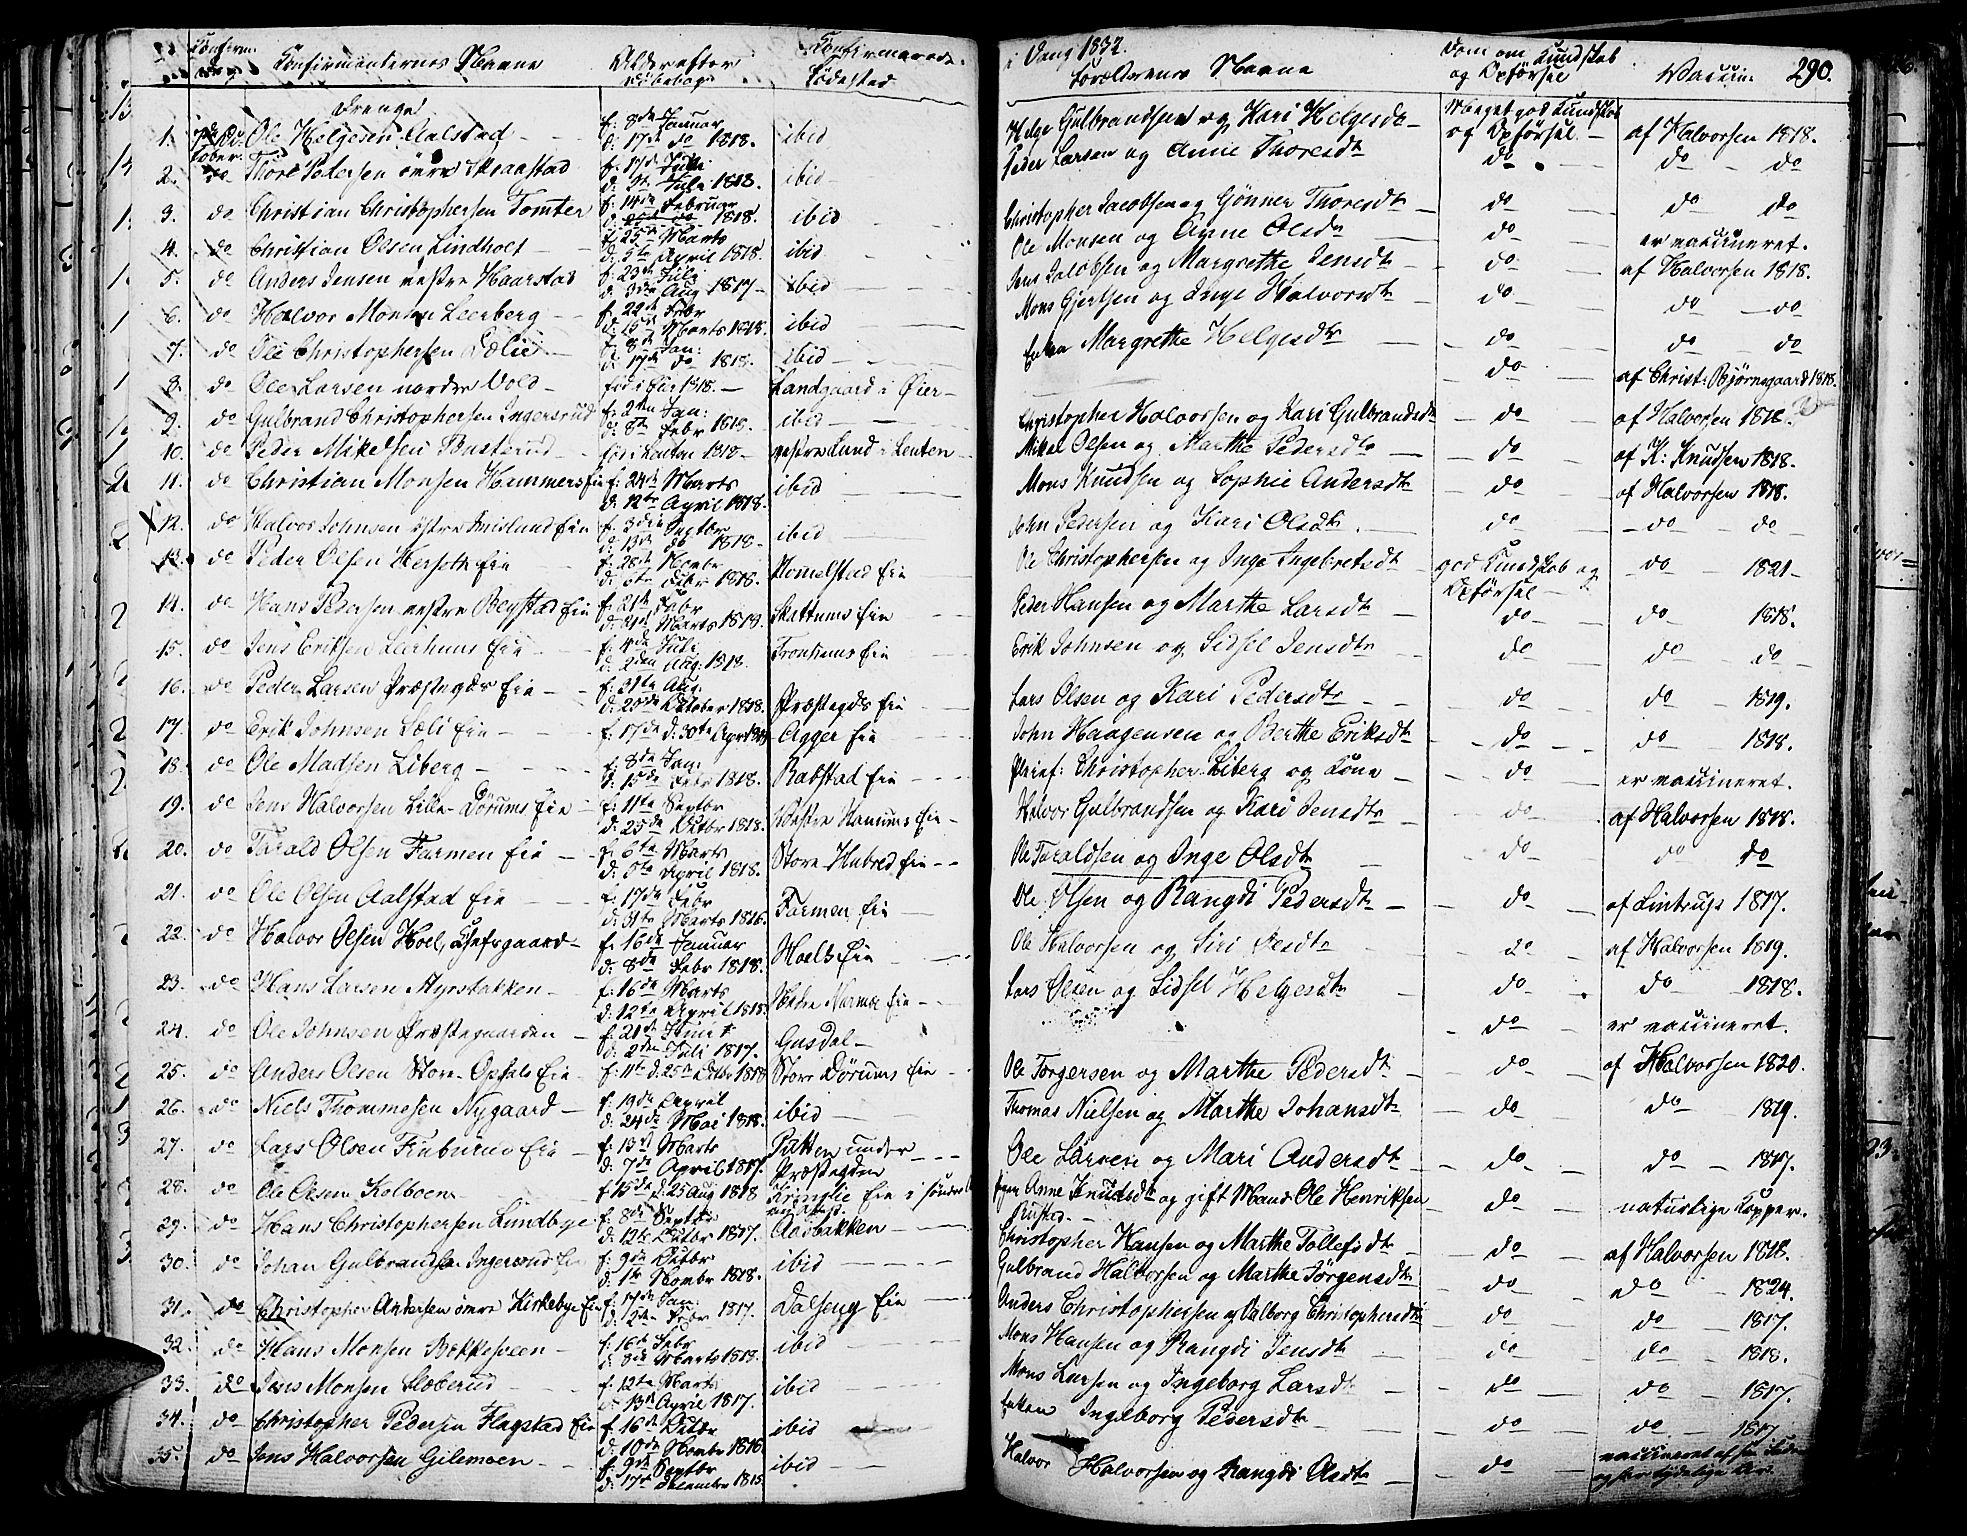 Confirmanternes Navne
i Vang 1832.
Forældrenes Navne
Dom om Kundskab og Opførsel
Vaccin:
290.
Drenge
1. Ole Helgesen Aalstad f: 8de Januar d: 17de do 1818. ibid Helge Gulbrandsen og Kari Helgesdr Meget god Kundskab og Opførsel af Halvorsen 1818.
2. do Thore Pedersen f: 17de Juli d: Juli 1818. ibid Peder Larsen og Anne Thoresdr do do do
3. do Christian Christophersen Tomter f: 14de Februar 1818. ibid Christopher Jacobsen og Gønner Thoresdr do do do
4. do Christian Olsen Lindholt f: 25de Marts d: 5te April 1818. ibid Ole Monsen og Anne Olsdr do er vaccineret.
5. do Anders Jensen vestre Haarstad f: 23de Juli d: 3die Aug 1817 ibid Jens Jacobsen og Margrethe Jensdr do af Halvorsen 1818.
6. do Halvor Monsen Leerberg f: 22de Febr d: 15de Marts 1818. ibid Mons Gjertsen og Inge Halvorsdr do do do
7. do Ole Christophersen Lælie f: 8de Jan: d: 17de do 1818. ibid Enken Margrethe Helgesdr do do do
8. do Ole Larsen nordre Vold fød i Øier 1818. Landgaard i Øier do af Christ: Bjørnsgaard 1818.
9. do Gulbrand Christophersen Ingersrud f: 2den Jan: d: 8de Febr 1818. ibid Christopher Halvorsen og Kari Gulbrandsdr do af Halvorsen
10. do Peder Mikelsen Busterud fød i Leuten 1818 vestre Lund i Leuten Mikel Olsen og Marthe Pedersdr do af K: Knudsen 1818.
11. do Christian Monsen Hammers Eie f: 24de Marts d: 12te April 1818. ibid Mons Knudsen og Sophie Andersdr do af Halvorsen 1818.
12. do Halvor Johnsen østre Eie f: 3die Septbr d: 13de do 1818 ibid John Pedersen og Kari Olsdr. do do do
13. do Peder Olsen Hersoth Eie f: 28de Novbr d: Debr 1818. Homelstad Eie Ole Christophersen og Inge Ingebretsdr god Kundskab og Opførsel do 1821
14. do Hans Pedersen vestre Beystad Eie f: 21de Febr d: 21de Marts 1818. Skattums Eie Peder Hansen og Marthe Larsdr do do 1818.
15. do Jens Eriksen Leerhuus Eie f: 4de Juli d: 2den Aug: 1818. Fronhuus Eie Erik Johnsen og Sidsel Jensdr do do do
16. do Peder Larsen Præstegds Eie f: 31te Aug: d: 20de Oktober 1818. Præstegds Eie Lars Olsen og Kari Pedersdr do do 1819.
17. do Erik Johnsen Læli Eie f: 17de d: 30te April Agger Eie John Haagensen og Berthe Eriksdr do do 1818.
18. do Ole Madsen Liberg f: 8de Jan: d: 15de Febr 1818. Rabstad Eie Pleief: Christopher Liberg og Kone do er vaccineret.
19. do Jens Halvorsen Lille-Dørums Eie f: 11te Septbr d: 25de Octbr 1818. Vestre Hanums Eie Halvor Gulbrandsen og Kari Jensdr do af Halvorsen 1818.
20. do Tarald Olsen Farmen Eie f: 6te Marts d: 5te April 1818. Store Hubred Eie Ole Taraldsen og Inge Olsdr do do do
21. do Ole Olsen Aalstad Eie f: 17de Febr d: 31te Marts 1816. Farmen Eie Ole Olsen og Rangdi Pedersdr do af Lintrup 1817.
22. do Halvor Olsen Hoel, f: 16de Januar d: 8de Febr 1818. Hoels Eie Ole Halvorsen og Siri do af Halvorsen 1819.
23. do Hans Larsen Myrebakken f: 16de Marts d: 12te April 1818. Vestre Eie Lars Olsen og Sidsel Helgesdr do do 1818.
24. do Ole Johnsen Præstegaarden f: 21de Juni d: 2den Juli 1817. Gusdal do er vaccineret.
25. do Anders Olsen Store-Opsals Eie f: 11te d: 25de Octbr Store Dørums Eie Ole Torgersen og Marthe Pedersdr do af Halvorsen 1820.
26. do Niels Thommesen Nygaard f: 19de April d: 24de Mai 1818. ibid Thomas Nielsen og Marthe Johansdr do do 1819.
27. do Lars Olsen Finborud Eie f: 13de Marts d: 7de April 1817. Patten under Præstegden Ole Larsen og Mari Andersdr do do 1817.
28. do Ole Olsen Kolboen f: 15de d: 25 Aug 1818 Kringlie Eie i søndre Pigen Anne Knudsdr og gift Mand Ole Henriksen Rusted do naturlige Kopper.
29. do Hans Christophersen Lundbye f: 8de Septbr d: 12te Octbr 1817. Aasbakken Christopher Hansen og Marthe Tollefsdr do af Halvorsen 1818.
30. do Johan Gulbrandsen Ingersrud Eie f: 9de Octbr d: 1te Novbr 1818. ibid Gulbrand Halvorsen og Marthe Jørgensdr do do 1824.
31. do Christopher Andersen øvre Kirkebye Eie f: 17de Jan: d: 12te Febr 1817. Dalseng Eie Anders Christophersen og Valborg Christophersdr do do 1817.
32. do Hans Monsen Bekkeveen f: 16de Febr d: 8de Marts 1818. ibid Mons Hansen og Rangdi Jensdr do do 1818.
33. do Jens Monsen Sloberud f: 12te Marts d: 13de April 1817. ibid Mons Larsen og Ingeborg Larsdr do do 1817.
34. do Christopher Pedersen Flagstad Eie f: 16de Octbr d: 10de Novbr 1816. ibid Enken Ingeborg Pedersdr do do 1817
35. do Jens Halvorsen Gilemoen f: 9de Septbr d: 17de December 1815 ibid Halvor Halvorsen og Rangdi Olsdr do vaccineret og har tydelige Ar